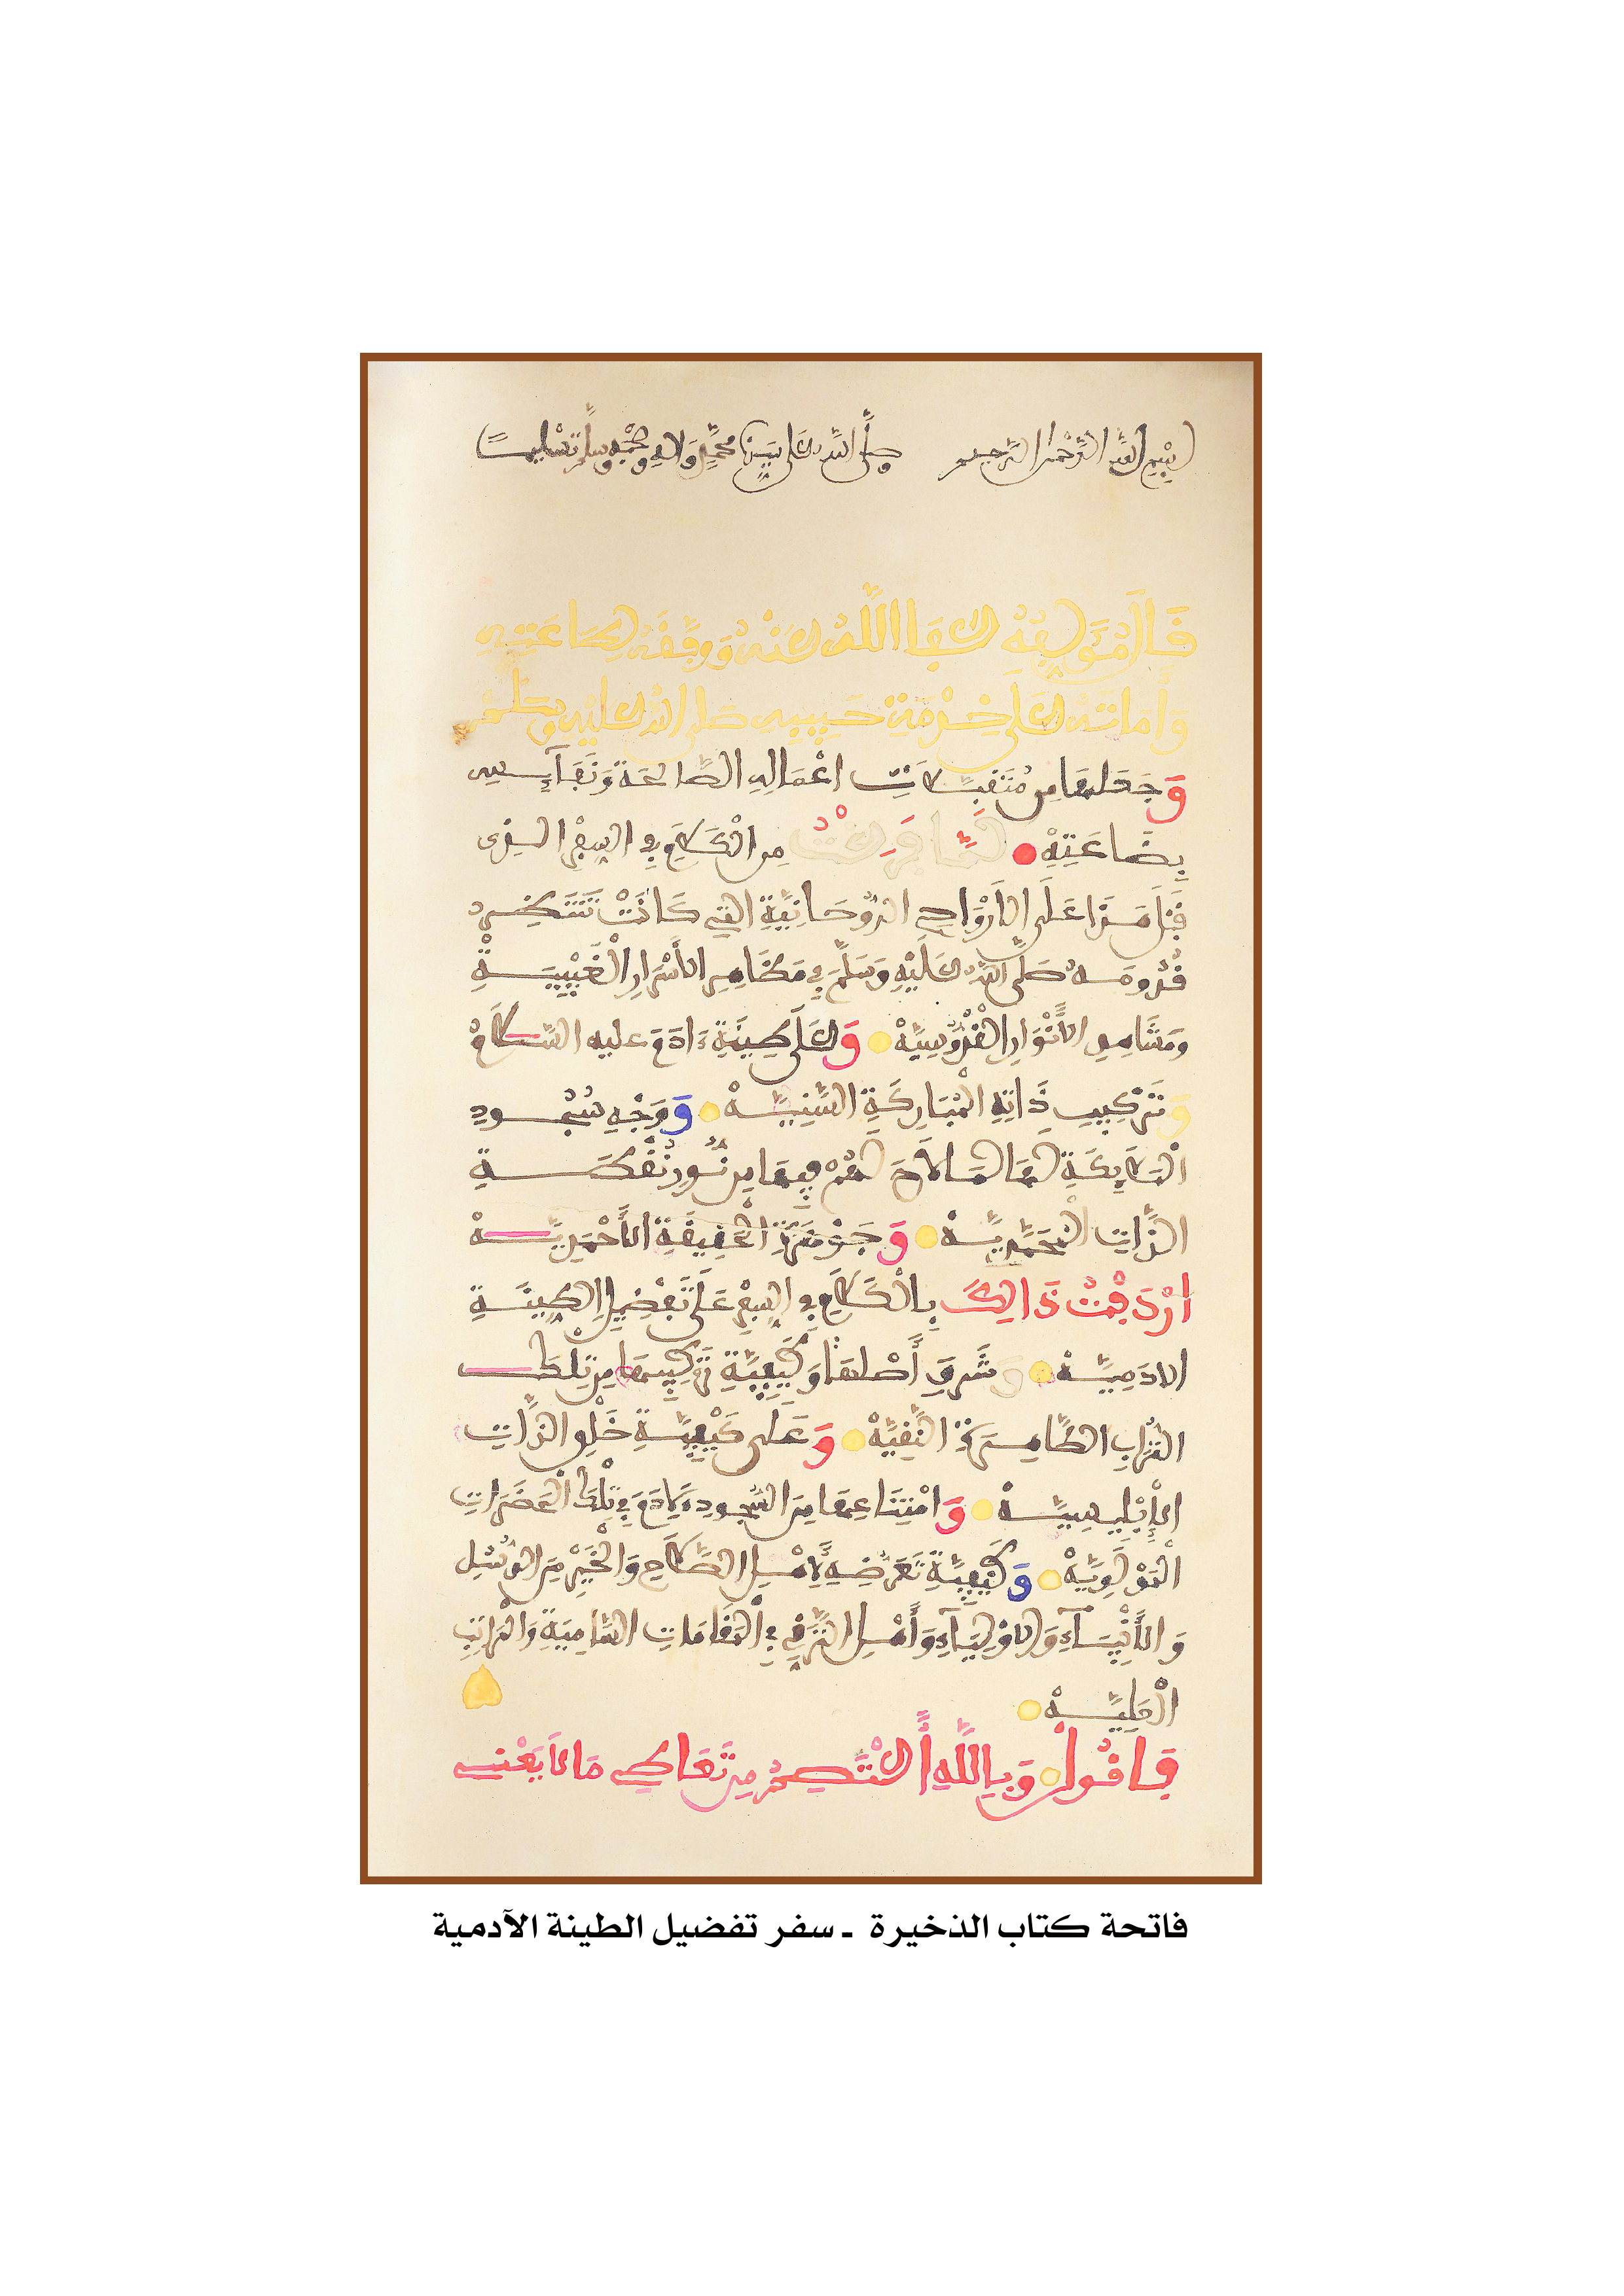 بسم الله الرحمن الرحيم صلى الله على نبينا محمد وءاله وصحبه وسلم تسليما
قَالَ مُؤَلِّفُهُ عَفَا اللَّهُ عَنْهُ وَوَفَّقَهُ لِطَاعَتِهِ
وَأَمَاتَهُ عَلَى خِدْمَةِ حَبِيبِهِ صلى الله عليه وسلم
وَجَعَلَهَا مِن مُتَقَبَّلَاتِ اعْمَالِهِ الصَّالِحَةِ وَنَفَآئِسِ
بِضَاعَتِهْ لَمَّا فَرَغْتُ مِنَ الْكَلَامِ فِي السِّفْرِ الذِي
قَبْلَ هَذَا عَلَى الأَرْوَاحِ الرُّوحَانِيَّةِ التِي كَانَتْ تَنْتَظِرُ
قُدُومَهُ صَلَّى اللهُ عَلَيْهِ وَسَلَّمَ فِي مَظَاهِرِ الأَسْرَارِ الْغَيْبِيَّةِ
وَمَشَاهِدِ الأَنْوَارِ الْقُدُّوسِيَّهْ وَعَلَى طِينَةِ ءَادَمَ عليه السَّلَامُ
وَتَرْكِيبِ ذَاتِهِ الْمُبَارَكَةِ السَّنِيَّهْ وَوَجْهِ سُجُودِ
الْمَلَائِكَةِ لَهَا لَمَّا لَاحَ لَهُمْ فِيهَا مِن نُّورِ نُقْطَةِ
الذَّاتِ الْمُحَمَّدِيَّهْ وَجَوْهَرَةِ الْحَقِيقَةِ الأَحْمَدِيَّهْ
ارْدَفْتُ ذَالِكَ بِالْكَلَامِ فِي السِّفْرِ عَلَى تَفْضِيلِ الطِّينَةِ
الادَمِيَّهْ وَشَرَفِ أَصْلِهَا وَكَيْفِيَّةِ تَرْكِيبِهَا مِن تِلْكَ
التُّرَابِ الطَّاهِرَةِ النَّقِيَّهْ وَعَلَى كَيْفِيَّةِ خَلْقِ الذَّاتِ
الإِبْلِيسِيَّهْ وَامْتِنَاعِهَا مِنَ السُّجُودِ لِـَٔادَمَ فِي تِلْكَ الْحَضَرَاتِ
الْمَوْلَوِيَّهْ وَكَيْفِيَّةِ تَعَرُّضِهِ لِأَهْلِ الصَّلَاحِ وَالْخَيْرِ مِنَ الرُّسُلِ
وَالأَنْبِيَآءِ وَالاوْلِيَآءِ وَأَهْلِ التَّرَقِّي فِي الْمَقَامَاتِ السَّامِيَةِ وَالْمَرَاتِبِ
الْعَلِيَّهْ
فَاقُولُ وَبِاللَّهِ أَعْتَصِمُ مِن تَعَاطِي مَا لاَ يَعْنِي
فاتحة كتاب الذخيرة ـ سفر تفضيل الطينة الآدمية